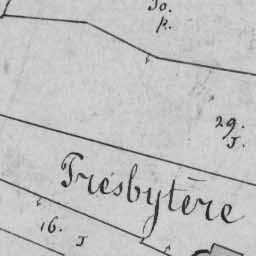 30.
p.
29.
J.
Presbytère
16. J